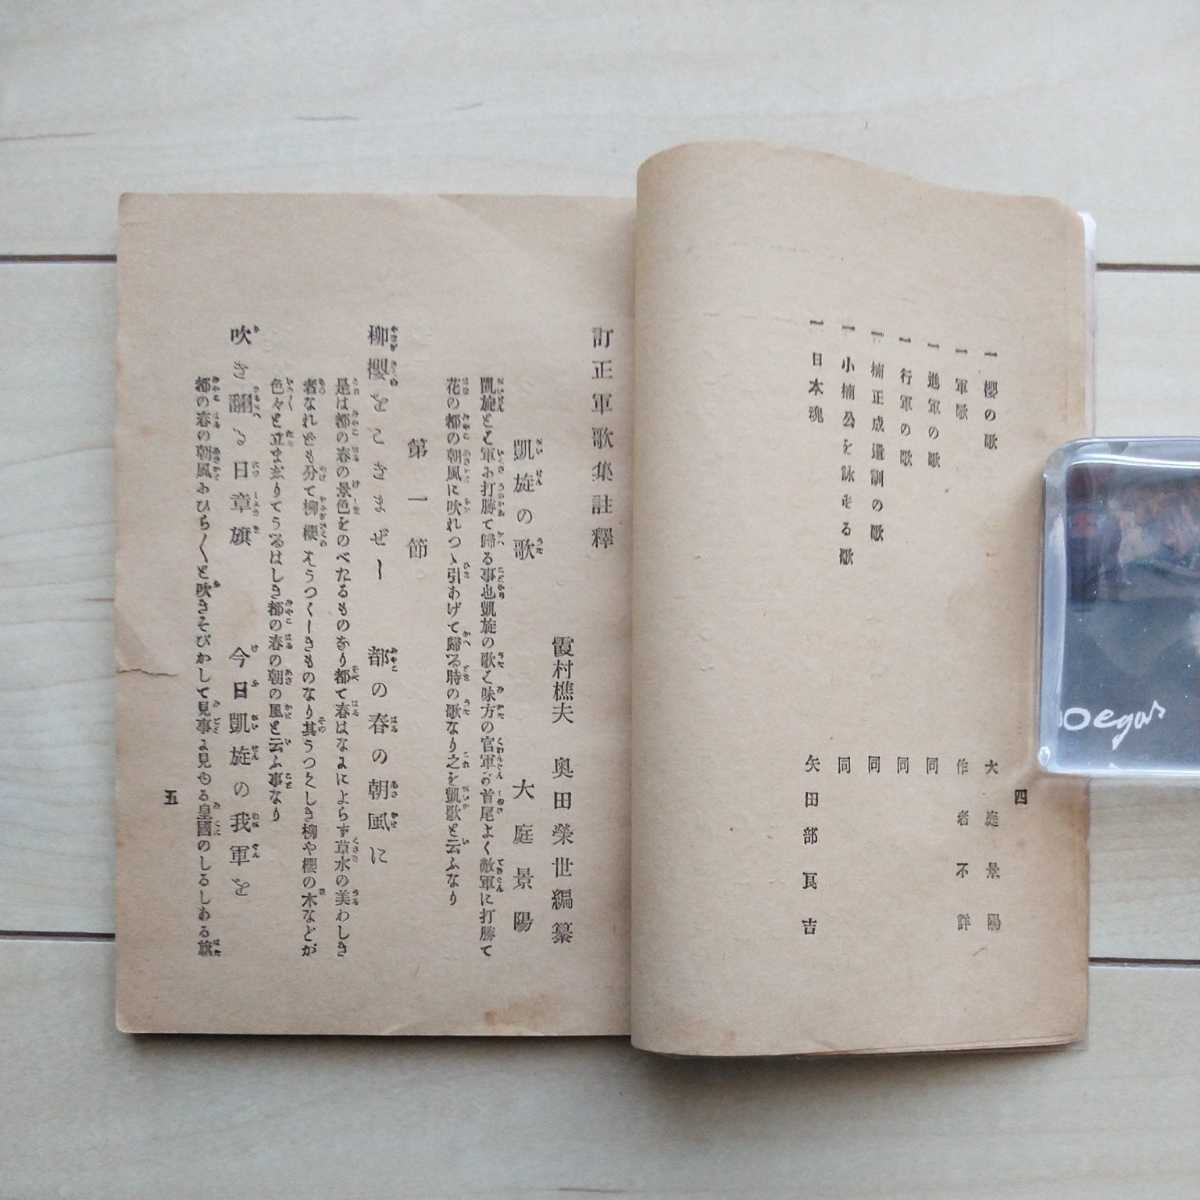 一 櫻の歌 大庭景陽
一 軍歌 作者不詳
一 進軍の歌 同
一 行軍の歌 同
一 楠正成遺訓の歌 同
一 小楠公を詠せる歌 同
一 日本魂 矢田部良吉
四
訂正軍歌集註釋
霞村樵夫 奥田榮世編纂
凱旋の歌 大庭景陽
凱旋とは軍に打勝て歸る事也凱旋の歌は味方の官軍が首尾よく敵軍に打勝て
花の都の朝風に吹れつゝ引あげて歸る時の歌なり之を凱歌と云ふなり
第一節
柳櫻をこきまぜし 都の春の朝風に
是は都の春の景色をのべたるものなり都て春はなによらず草木の美わしき
者なれども分て柳櫻はうつくしきものなり其うつくしき柳や櫻の木などが
色々と立まじりてうるはしき都の春の朝の風と云ふ事なり
吹き翻る日章旗 今日凱旋の我軍を
都の春の朝風にひら〱と吹きそびかして見事に見ゆる皇國のしるしある旗
五
egas